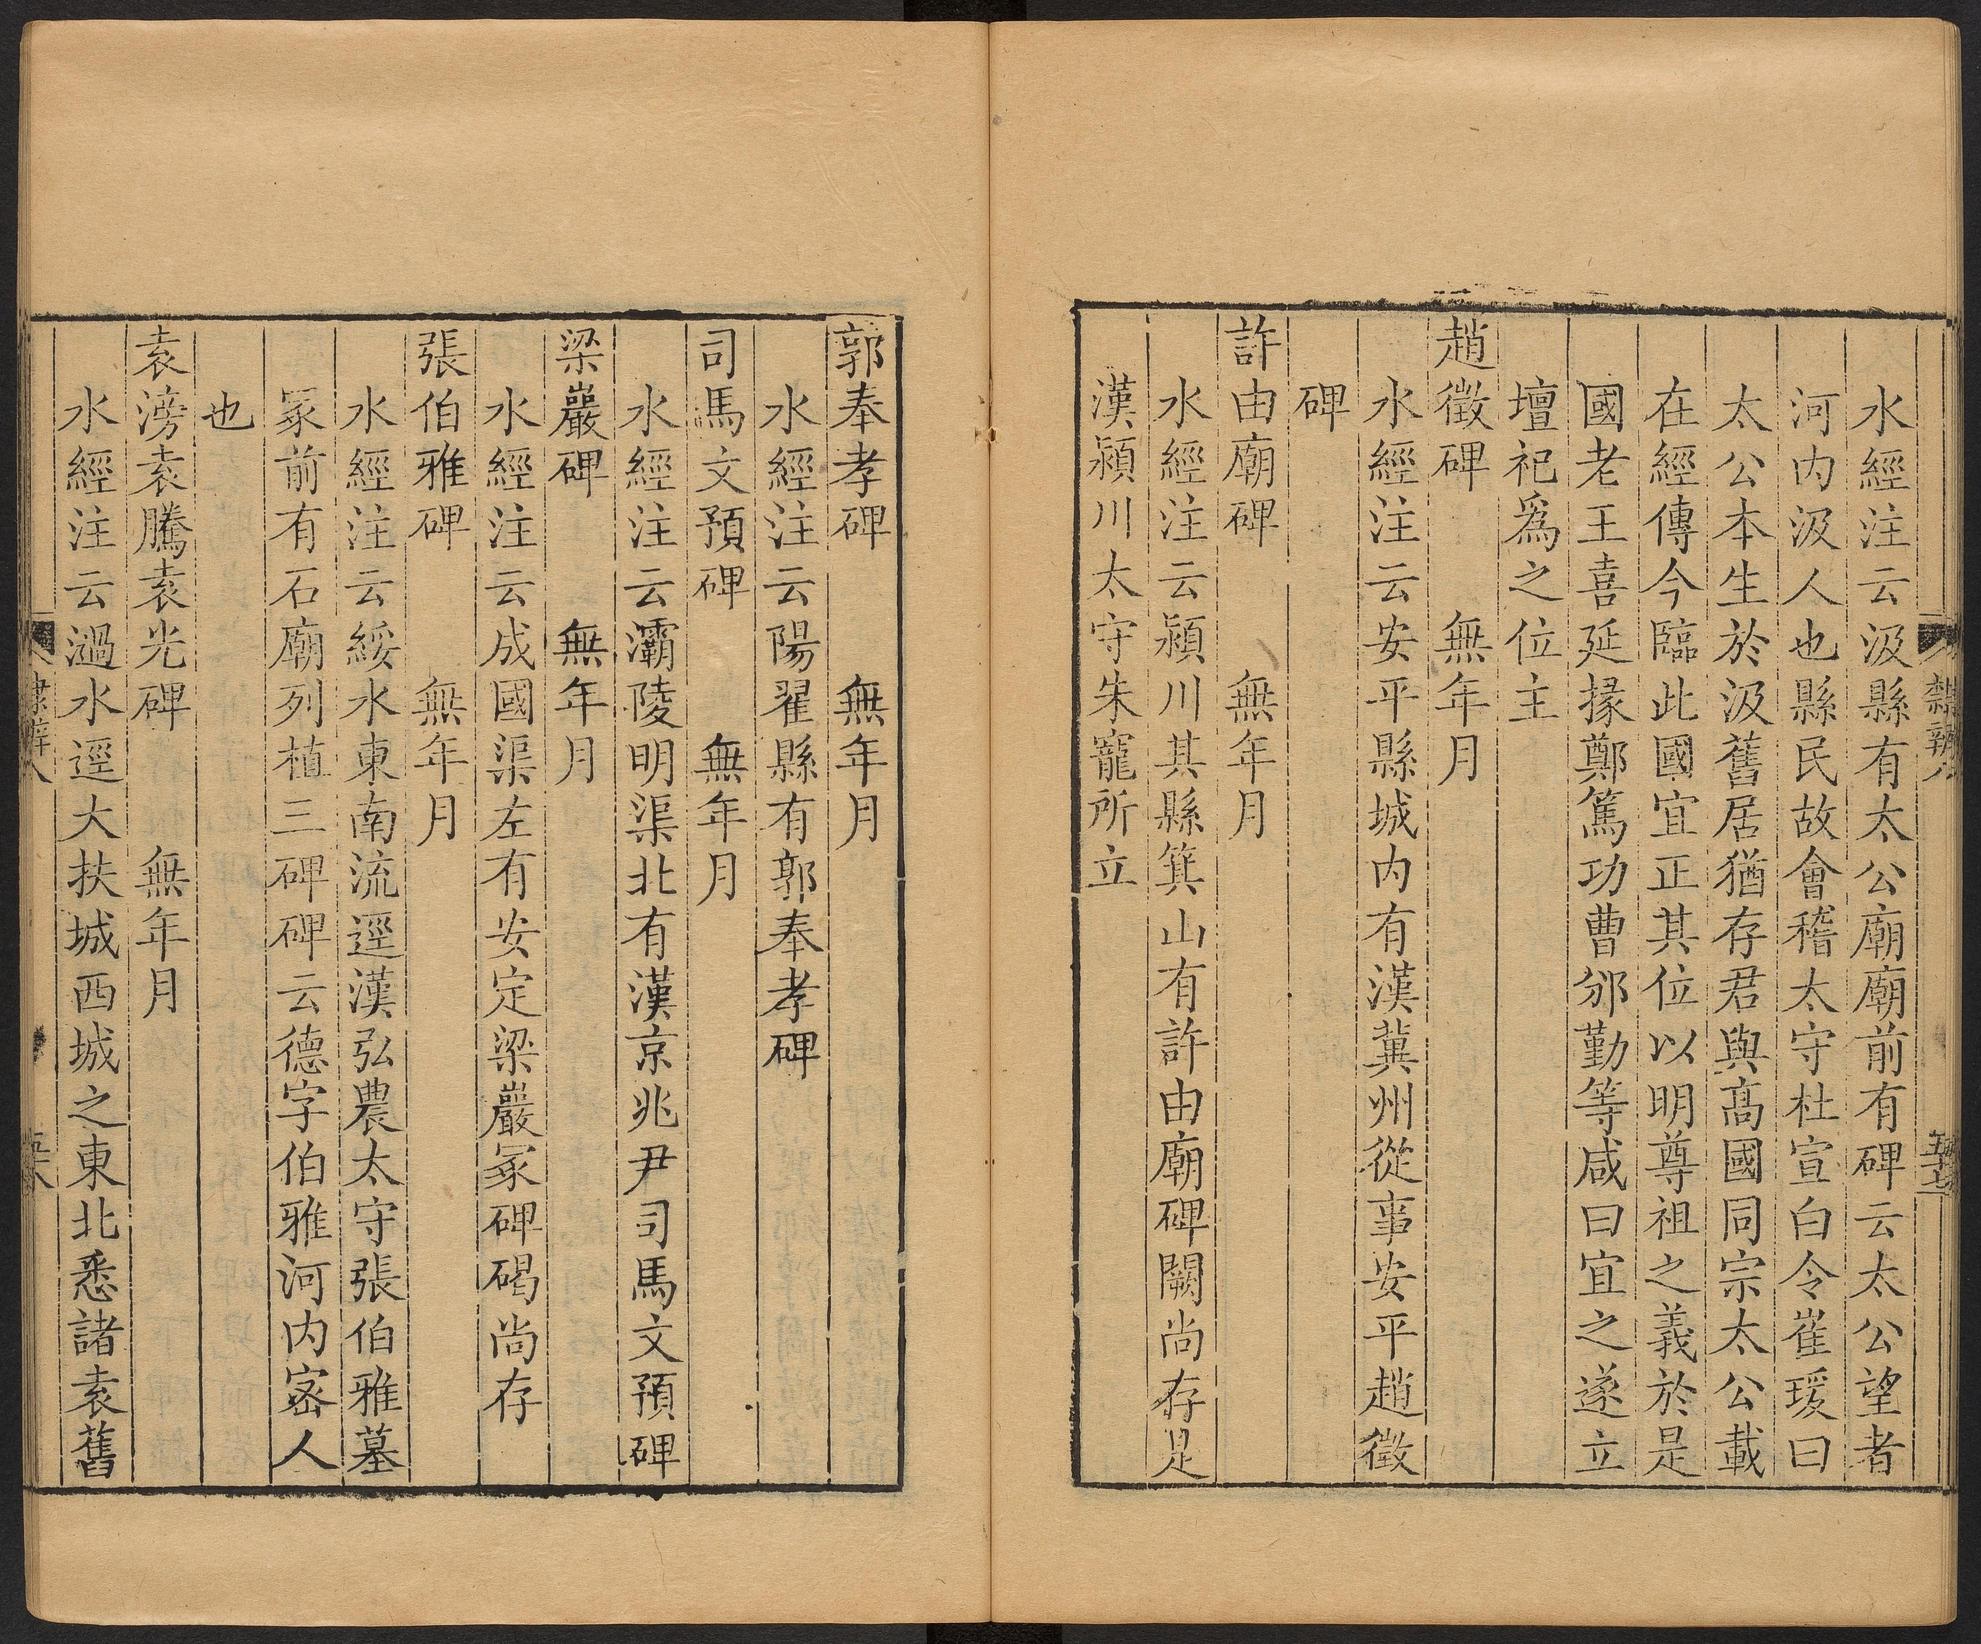 水經注云汲縣有太公廟廟前有碑云太公望者
河内汲人也縣民故會稽太守杜宣白令崔瑗曰
太公本生於汲舊居猶存君與髙國同宗太公載
在經傳今臨此國宜正其位以明尊祖之義於是
國老王喜延掾鄭篤功曹邠勤等咸曰宜之遂立
壇祀爲之位主
趙徵碑　無年月
水經注云安平縣城内有漢冀州從事安平趙徵
碑
許由廟碑　無年月
水經注云潁川其縣箕山有許由廟碑闕尚存是
漢潁川太守朱寵所立
郭奉孝碑　無年月
水經注云陽翟縣有郭奉孝碑
司馬文預碑　無年月
水經注云灞陵明渠北有漢京兆尹司馬文預碑
梁巖碑　無年月
水經注云成國渠左有安定梁巖冢碑碣尚存
張伯雅碑　無年月
水經注云綏水東南流逕漢弘農太守張伯雅墓
冢前有石廟列植三碑碑云德字伯雅河内密人
也
袁滂袁騰袁光碑　無年月
水經注云濄水逕大扶城西城之東北悉諸袁舊